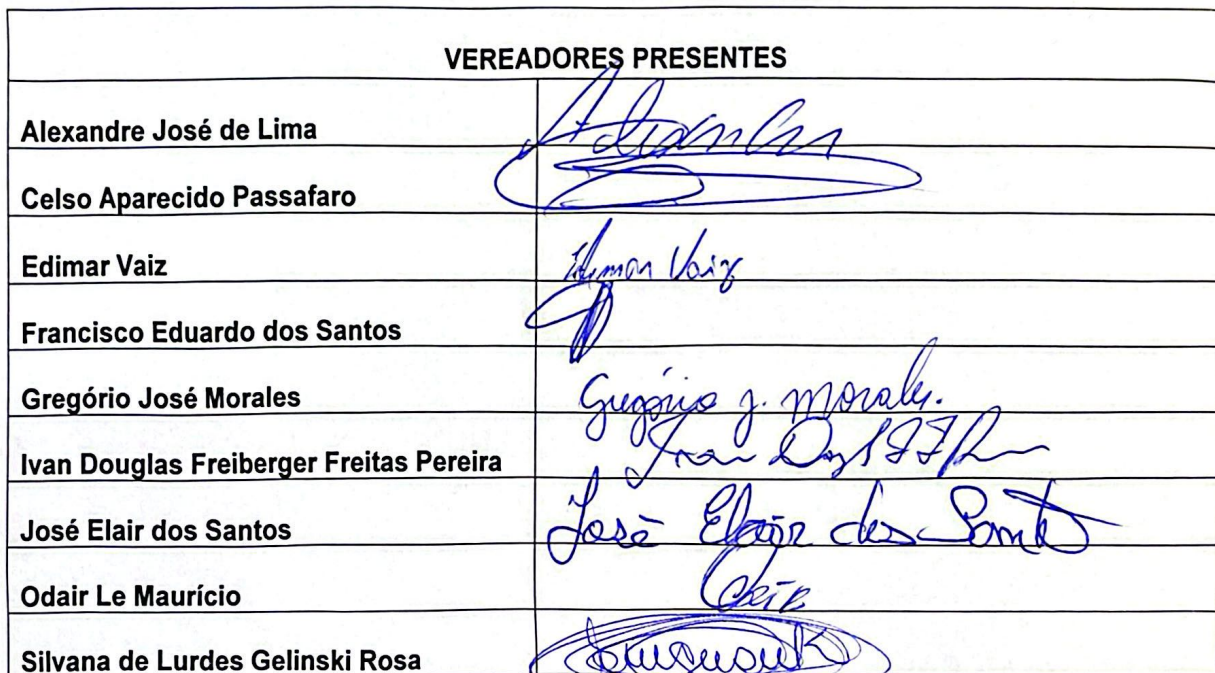 VEREADORES PRESENTES
Alexandre José de Lima
Celso Aparecido Passafaro
Edimar Vaiz Vaiz
Francisco Eduardo dos Santos
Gregório José Morales Gregório J. Morales.
Ivan Douglas Freiberger Freitas Pereira Ivan
José Elair dos Santos José Elair dos Santos
Odair Le Maurício
Silvana de Lurdes Gelinski Rosa